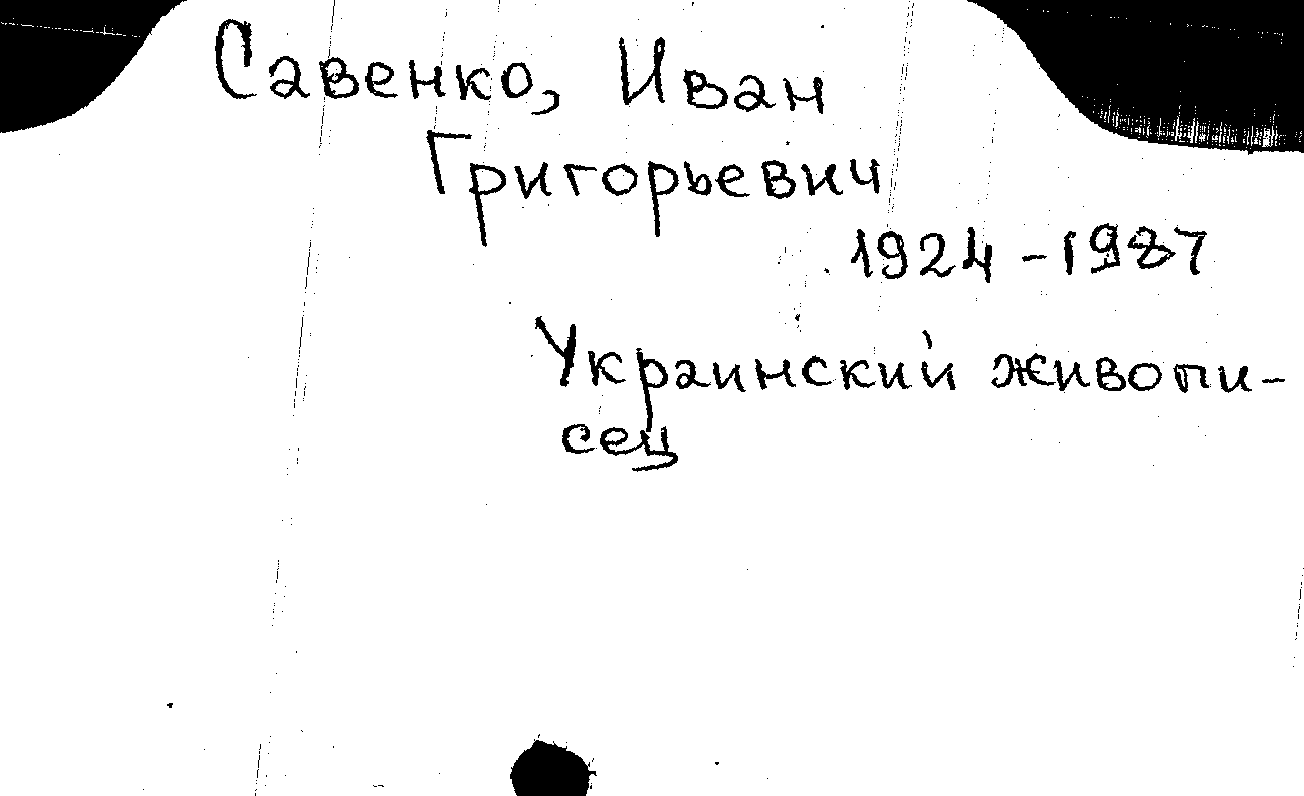 Савенко, Иван
Григорьевич
1924-1987
Украинский живопи-
сец